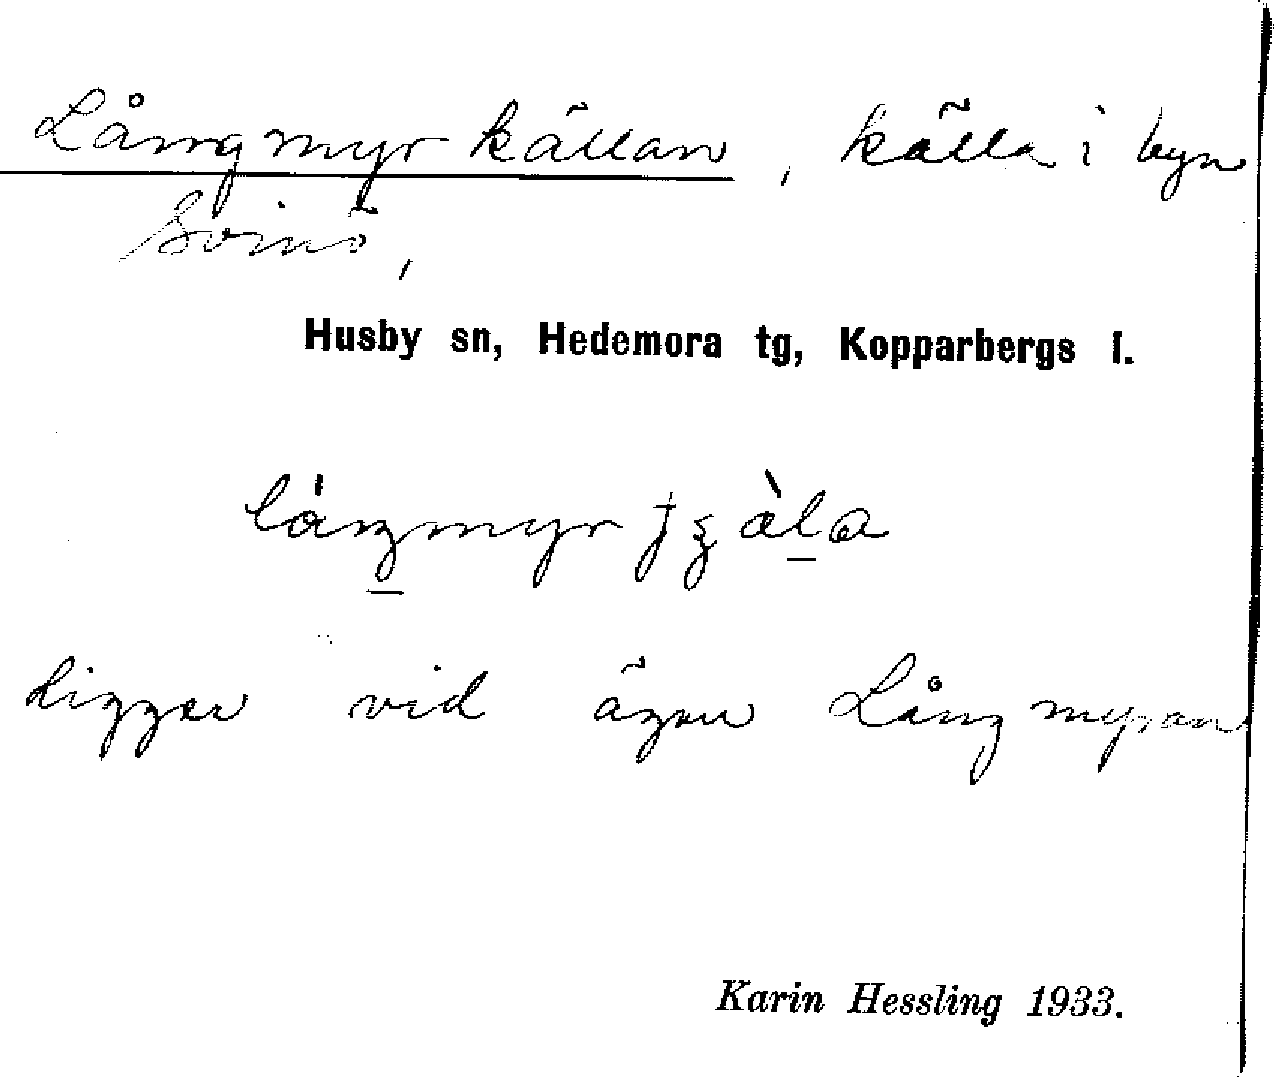 Långmyrkällan, källa i byn
Svinö,
Husby sn, Hedemora tg, Kopparbergs l.
Ligger vid ägan Långmyran
Karin Hessling 1933.